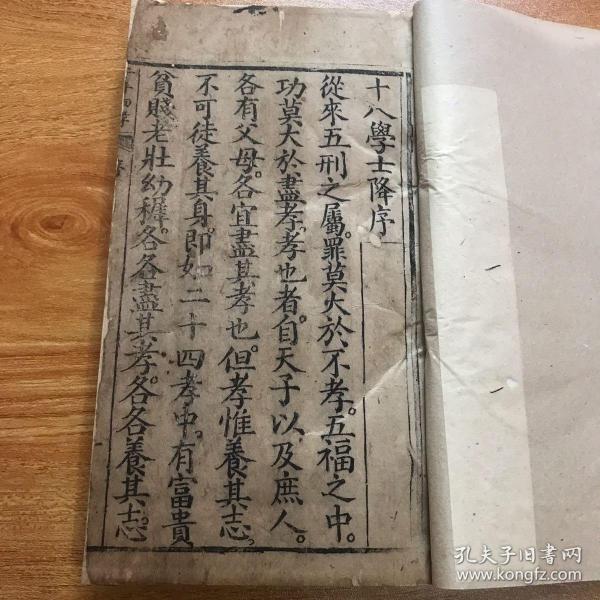 十八學士降序
從來五刑之屬。罪莫大於不孝。五福之中。
功莫大於盡孝。孝也者。自天子以及庶人。
各有父母。各宜盡其孝也。但孝惟養其志。
不可徒養其身。即如二十四孝中。有富貴
貧賤老壯幼穉。各各盡其孝。各各養其志。
孔夫子旧书网
www.kongfz.com